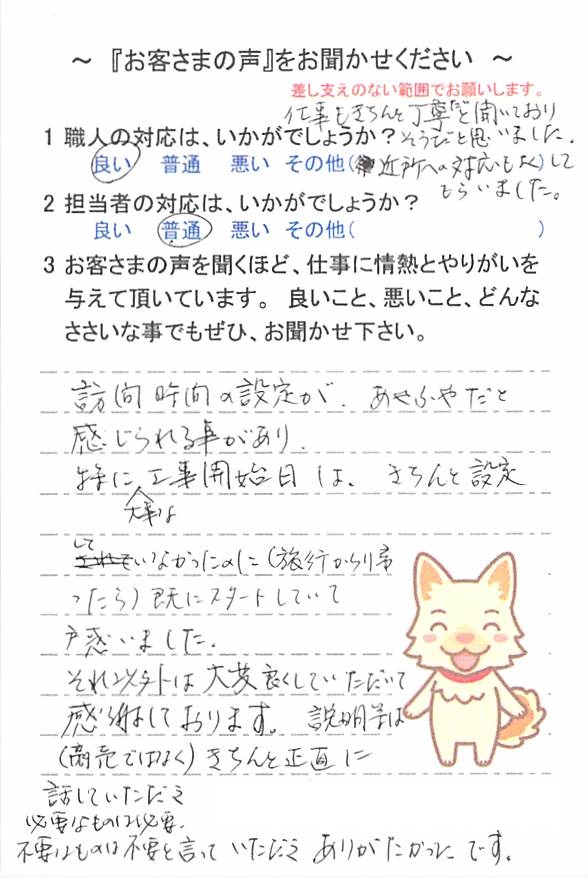 ～『お客さまの声』をお聞かせください ～
差し支えのない範囲でお願いします。
仕事もきちんと丁寧だと聞いており
1 職人の対応は、いかがでしょうか？そうだと思いました。
良い 普通 悪い その他(近所への対応もよく)して
もらいました。
2 担当者の対応は、いかがでしょうか？
良い 普通 悪い その他( )
3 お客さまの声を聞くほど、仕事に情熱とやりがいを
与えて頂いています。 良いこと、悪いこと、どんな
ささいな事でもぜひ、お聞かせ下さい。
訪問時間の設定が、あやふやだと
感じられる事があり、
特に工事開始日は、きちんと設定
大事な
して
いなかったのに(旅行から帰
ったら)既にスタートしていて
戸惑いました。
それ以外は大変良くしていただいて
感謝しております。説明等は
(商売ではなく)きちんと正直に
話していただき
必要なものは必要、
不要なものは不要と言っていただき ありがたかったです。